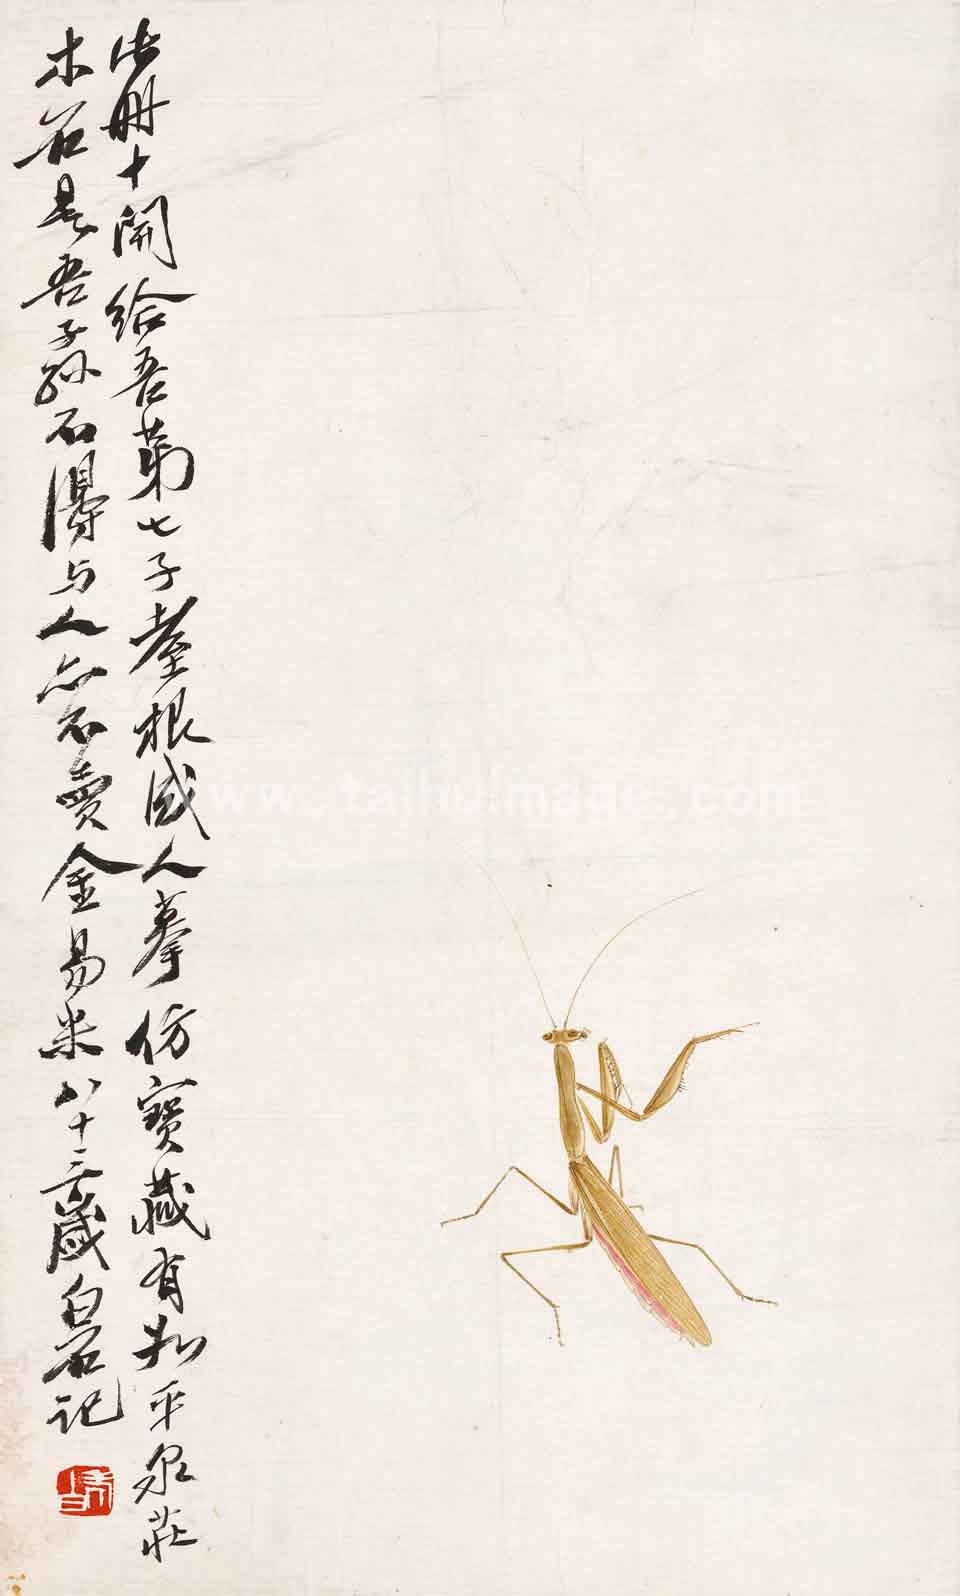 此册十開給吾第七子臺根成人摹仿寶藏有如平泉莊
木石是吾子孫不得与人亦不賣金易米八十三歲白石記
www.taihuimage.com